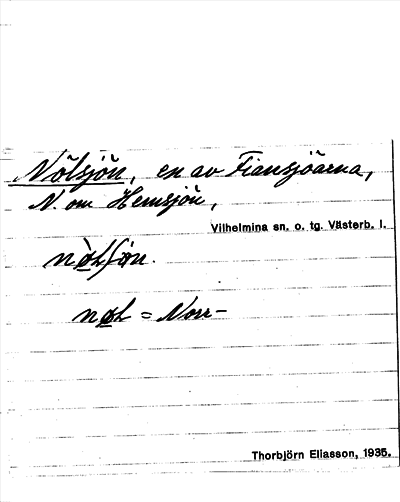 Nölsjön, en av Fiansjöarna,
N. om Hemsjön,
Vilhelmina sn. o. tg. Västerb. l.
nø̀Lʃøn.
nøL = Norr-
Thorbjörn Eliasson, 1935.